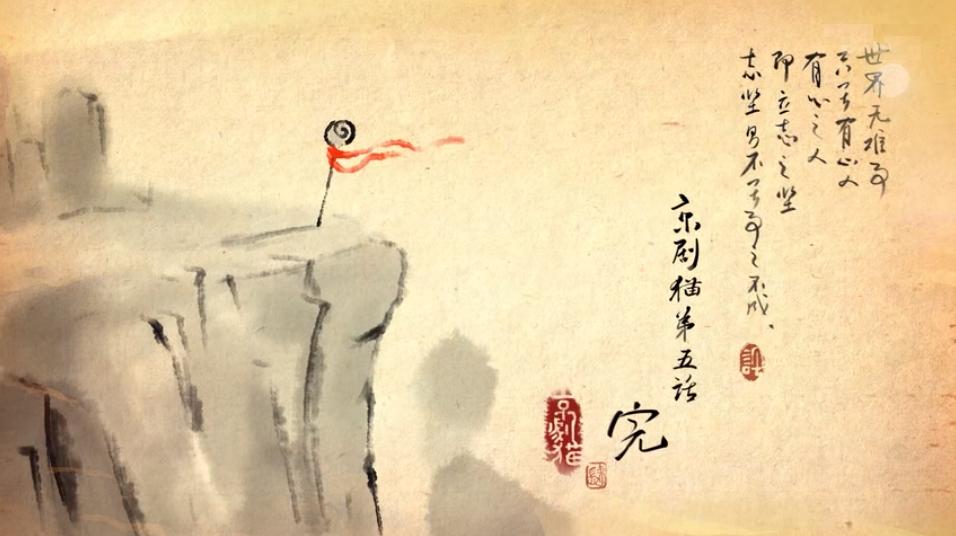 世界无难事
只畏有心人
有心之人
即立志之坚
志坚则不畏事之不成。
京剧猫第五话
完
京劇猫